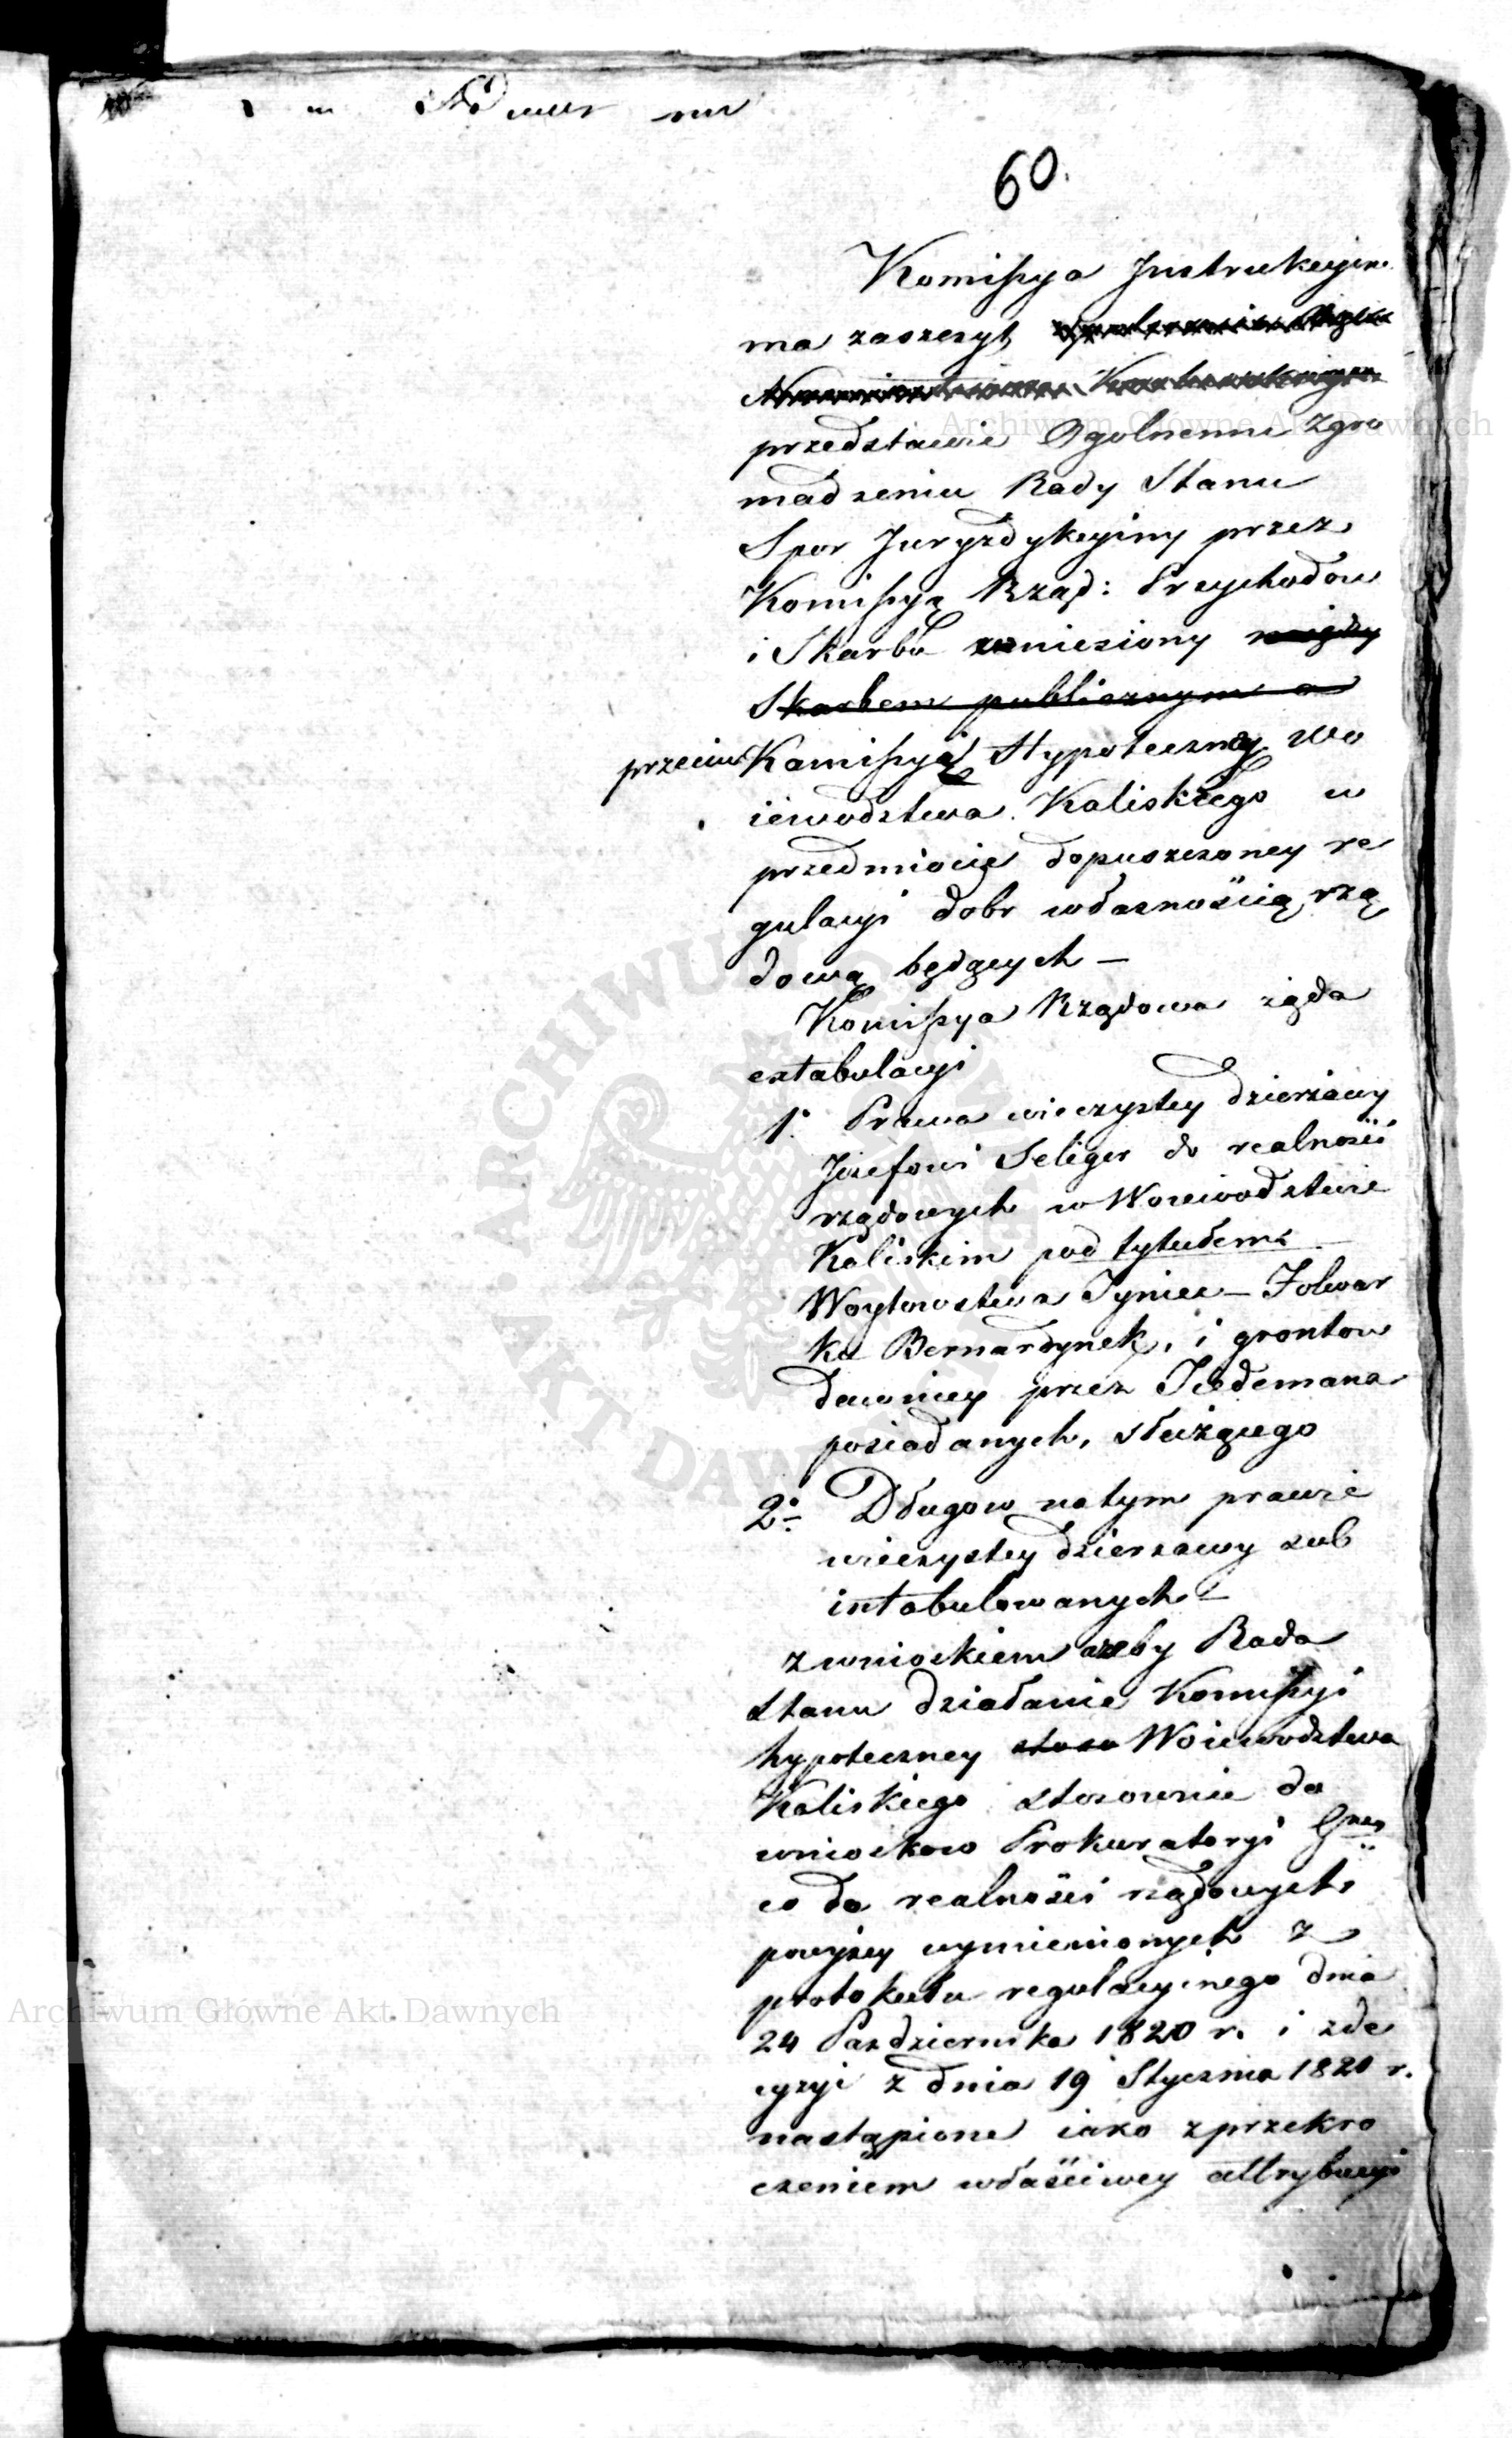 60.
Komissya Instrukcyina
ma zaszczyt
przedstawić Ogolnemu Zgro
madzeniu Rady Stanu
Spor Juryzdykcyiny przez
Komissyą Rząd: Przychodow
i Skarbu wzniesiony między
Skarbem publicznym a
przeciw Komissyi Hypoteczney Wo
iewodztwa Kaliskiego w
przedmiocie dopuszczoney re
gulacyi dobr własnością rzą
dową będących —
Komissya Rządowa ząda
extabulacyi
1. Prawa wieczystey dzierżawy
Józefowi Seliger do realności
rządowych w Woiewodztwie
Kaliskim pod tytułem:
Woytowstwa Tyniec — Folwar
ku Bernardynek, i grontow
dawniey przez Tiedemana
posiadanych, służącego
2. Długow na tym prawie
wieczystey dzierzawy sub
intabulowanych —
z wnioskiem aby Rada
Stanu działanie Komissyi
hypoteczney stoso Woiewodztwa
Kaliskiego stosownie do
wnioskow Prokuratoryi Gney
co do realności rządowych
powyżey wymienionych z
protokułu regulacyinego dnia
24 Pazdziernika 1820 r. i zde
cyzyi z dnia 19 Stycznia 1820 r.
nastąpione iako z przekro
czeniem właściwey attrybucyi
Archiwum Główne Akt Dawnych
Archiwum Główne Akt Dawnych